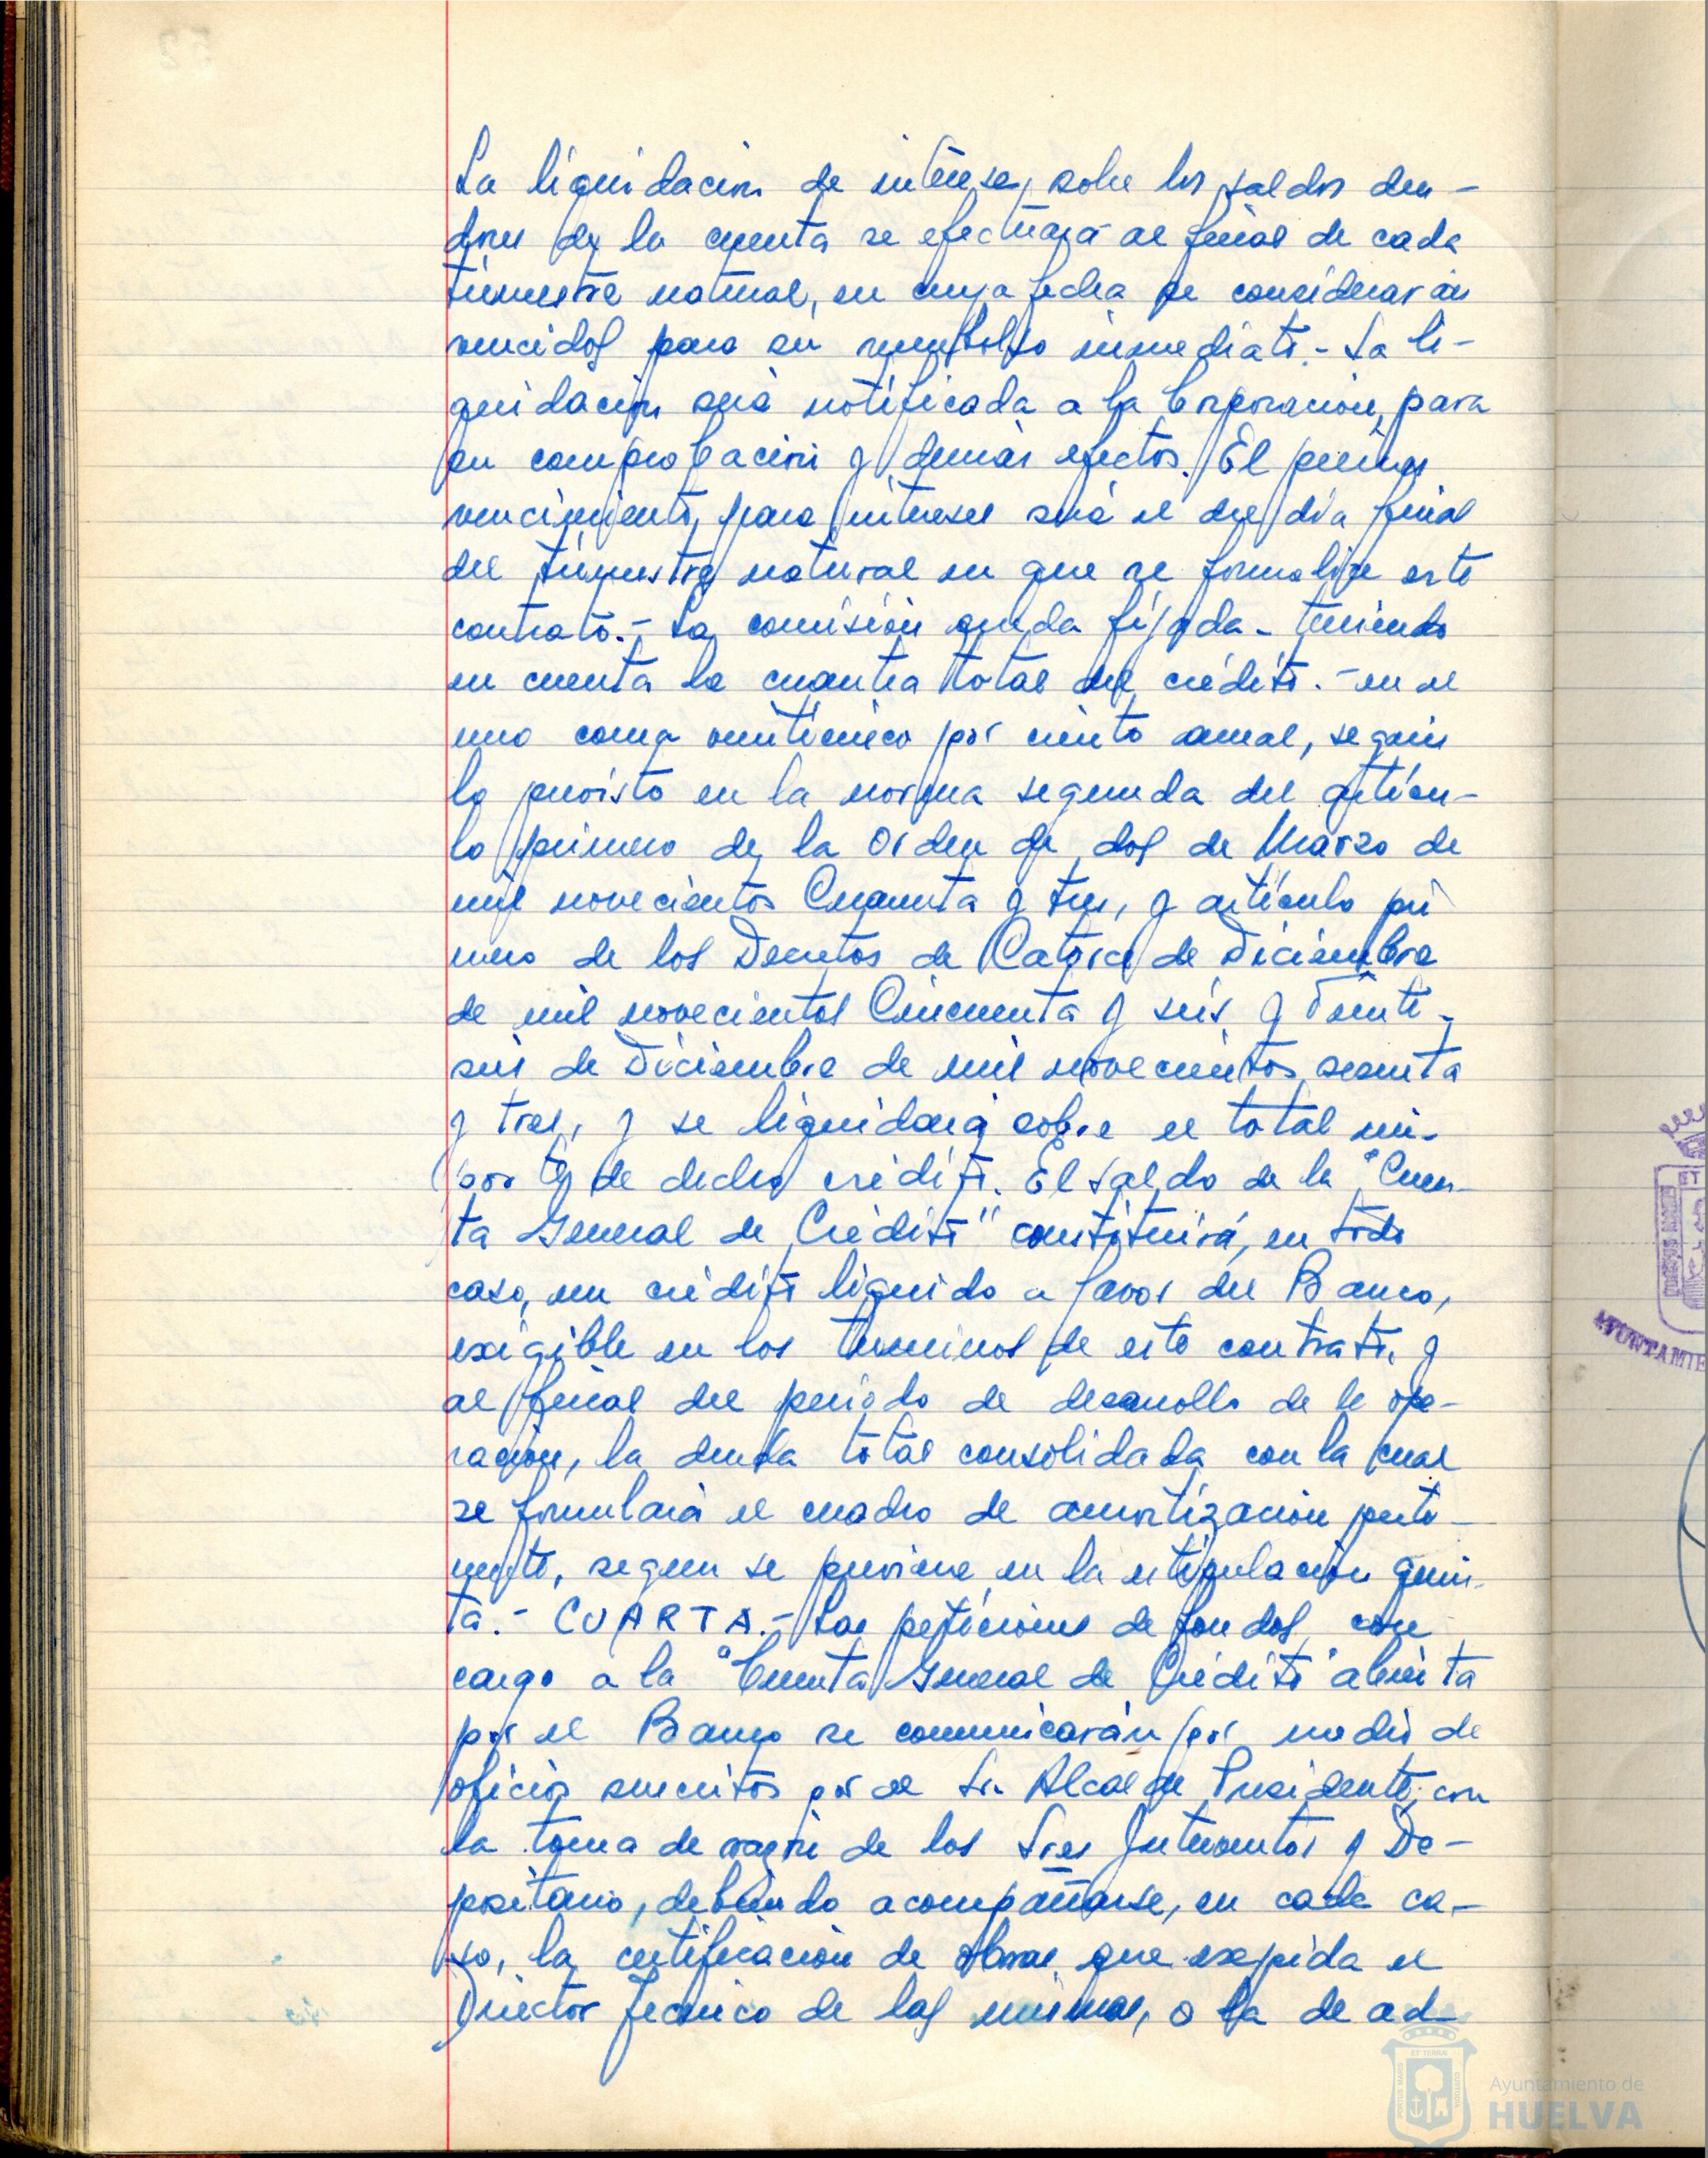 La liquidación de intereses sobre los saldos deu-
dores de la cuenta se efectuará al final de cada
trimestre natural, en cuya fecha se considerarán
vencidos para su reembolso inmediato.- La li-
quidación será notificada a la Corporación, para
su comprobación y demás efectos. El primer
vencimiento para intereses será el del día final
del trimestre natural en que se formalice este
contrato.- La comisión queda fijada- teniendo
en cuenta la cuantía total del crédito.- en el
uno coma veinticinco por ciento anual, según
lo previsto en la norma segunda del artícu-
lo primero de la Orden de dos de Marzo de
mil novecientos Cuarenta y tres, y artículo pri
mero de los Decretos de Catorce de Diciembre
de mil novecientos Cincuenta y seis y Veinti-
seis de Diciembre de mil novecientos sesenta
y tres, y se liquidará sobre el total im-
porte de dicho crédito. El saldo de la "Cuen-
ta General de Crédito" constituirá, en todo
caso, un crédito líquido a favor del Banco,
exigible en los términos de este contrato, y
al final del período de desarrollo de la ope-
ración, la deuda total consolidada con la cual
se formulará el cuadro de amortización perti-
nente, según se previene en la estipulación quin-
ta.- CUARTA.- Las peticiones de fondos con
cargo a la "Cuenta General de Crédito" abierta
por el Banco se comunicarán por medio de
oficios suscritos por el Sr. Alcalde Presidente, con
la toma de razón de los Sres Interventor y De-
positario, debiendo acompañarse, en cada ca-
so, la certificación de obras que expida el
Director Técnico de las mismas, o la de ad-
AYUNTAMIE
Ayuntamiento de
HUELVA